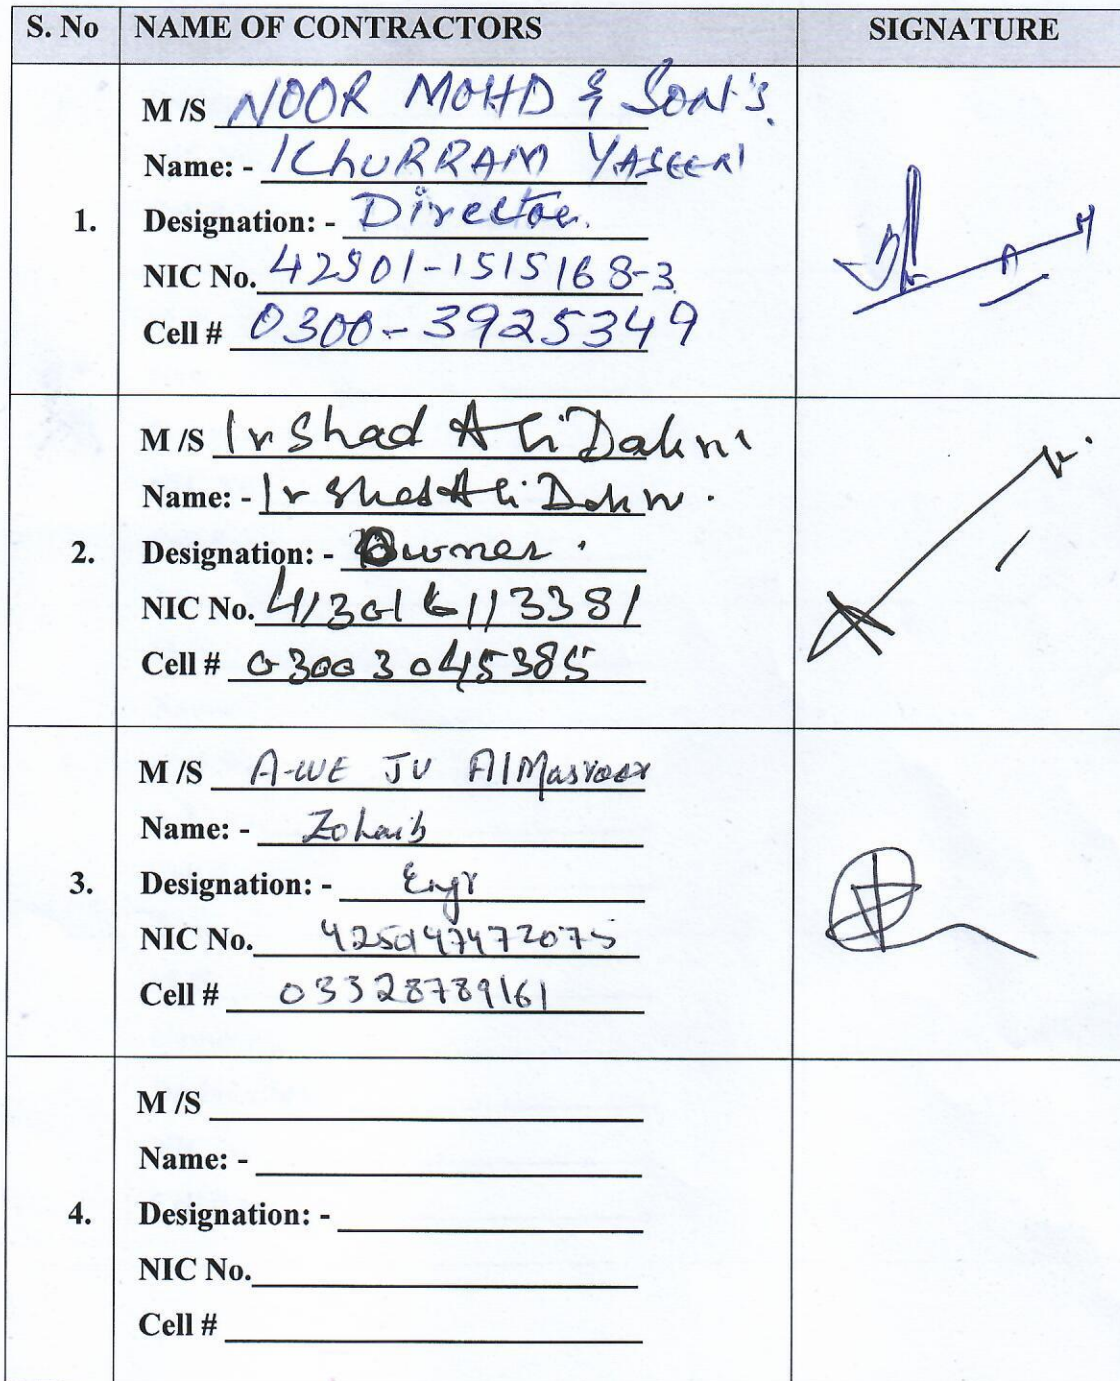 S. No NAME OF CONTRACTORS SIGNATURE
1.
M /S NOOR MOHD & SON'S.
Name: - KhURRAM YASEEN
Designation: - Director.
NIC No. 42301-1515168-3
Cell # 0300-3925349
2.
M /S Irshad Ali Dahri
Name: - Irshad Ali Dahri.
Designation: - Owner.
NIC No. 4130161113381
Cell # 03003045385
3.
M /S A-WE JV AlMasroor
Name: - Zohaib
Designation: - Engr
NIC No.
Cell # 03328789161
4.
M /S
Name: -
Designation: -
NIC No.
Cell #